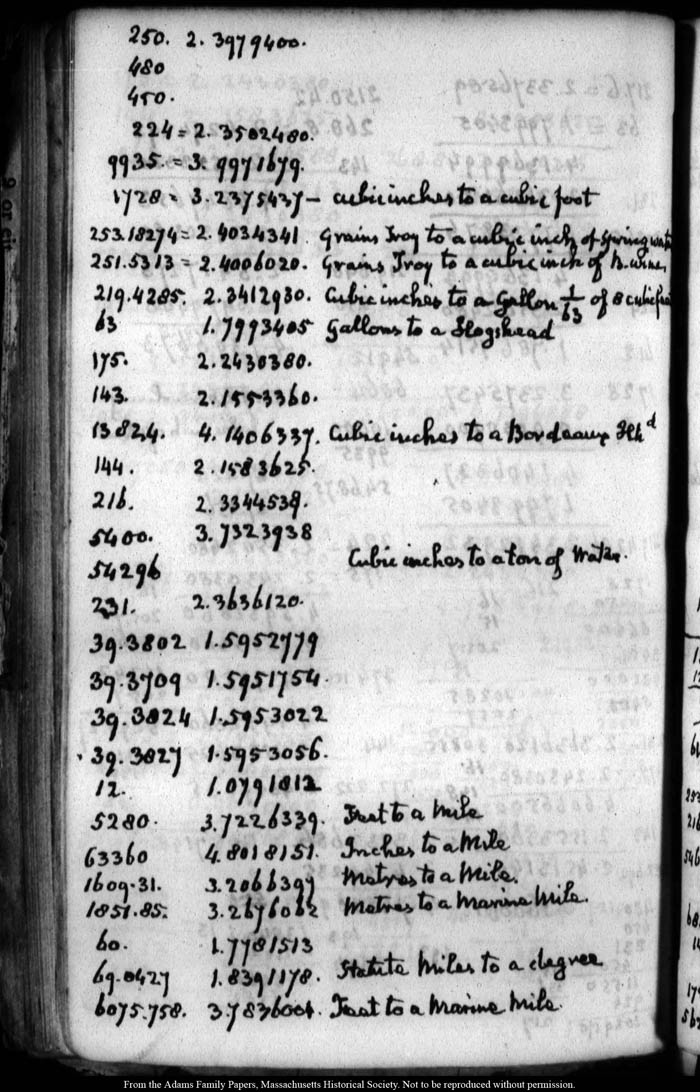 250. 2.3979400.
480
450.
224 = 2.3502480.
9935. = 3.9971679.
1728 = 3.2375437 – cubic inches to a cubic foot
253.18274 = 2.4034341. Grains Troy to a cubic inch of Spring water
251.5313 = 2.4006020. Grains Troy to a cubic inch of B. wine,
219.4285. 2.3412930. Cubic inches to a Gallon 1/63 of 8 cubic feet
63 1.7993405 Gallons to a Hogshead
175. 2.2430380.
143. 2.1553360.
13824. 4.1406337. Cubic inches to a Bordeaux Hhd
144. 2.1583625.
216. 2.3344538.
5400. 3.7323938
54296 Cubic inches to a ton of Water.
231. 2.3636120.
39.3802 1.5952779
39.3709 1.5951754.
39.3824 1.5953022
39.3827 1.5953056.
12. 1.0791812
5280. 3.7226339. Feet to a Mile
63360 4.8018151. Inches to a Mile
1609.31. 3.2066399 Metres to a Mile.
1851.85. 3.2676062 Metres to a Marine Mile.
60. 1.7781513
69.0427 1.8391178. Statute Miles to a degree
6075.758. 3.7836004. Feet to a Marine Mile
From the Adams Family Papers, Massachusetts Historical Society. Not to be reproduced without permission.